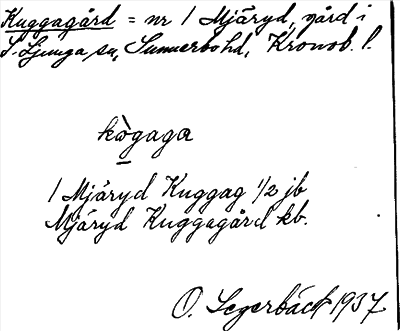 Kuggagård = nr 1 Mjäryd, gård i
S. Ljunga sn, Sunnerbo hd, Kronob. l.
kògaga
1 Mjäryd Kuggag 1/2 jb
Mjäryd Kuggagård kb.
O. Segerbäck 1937